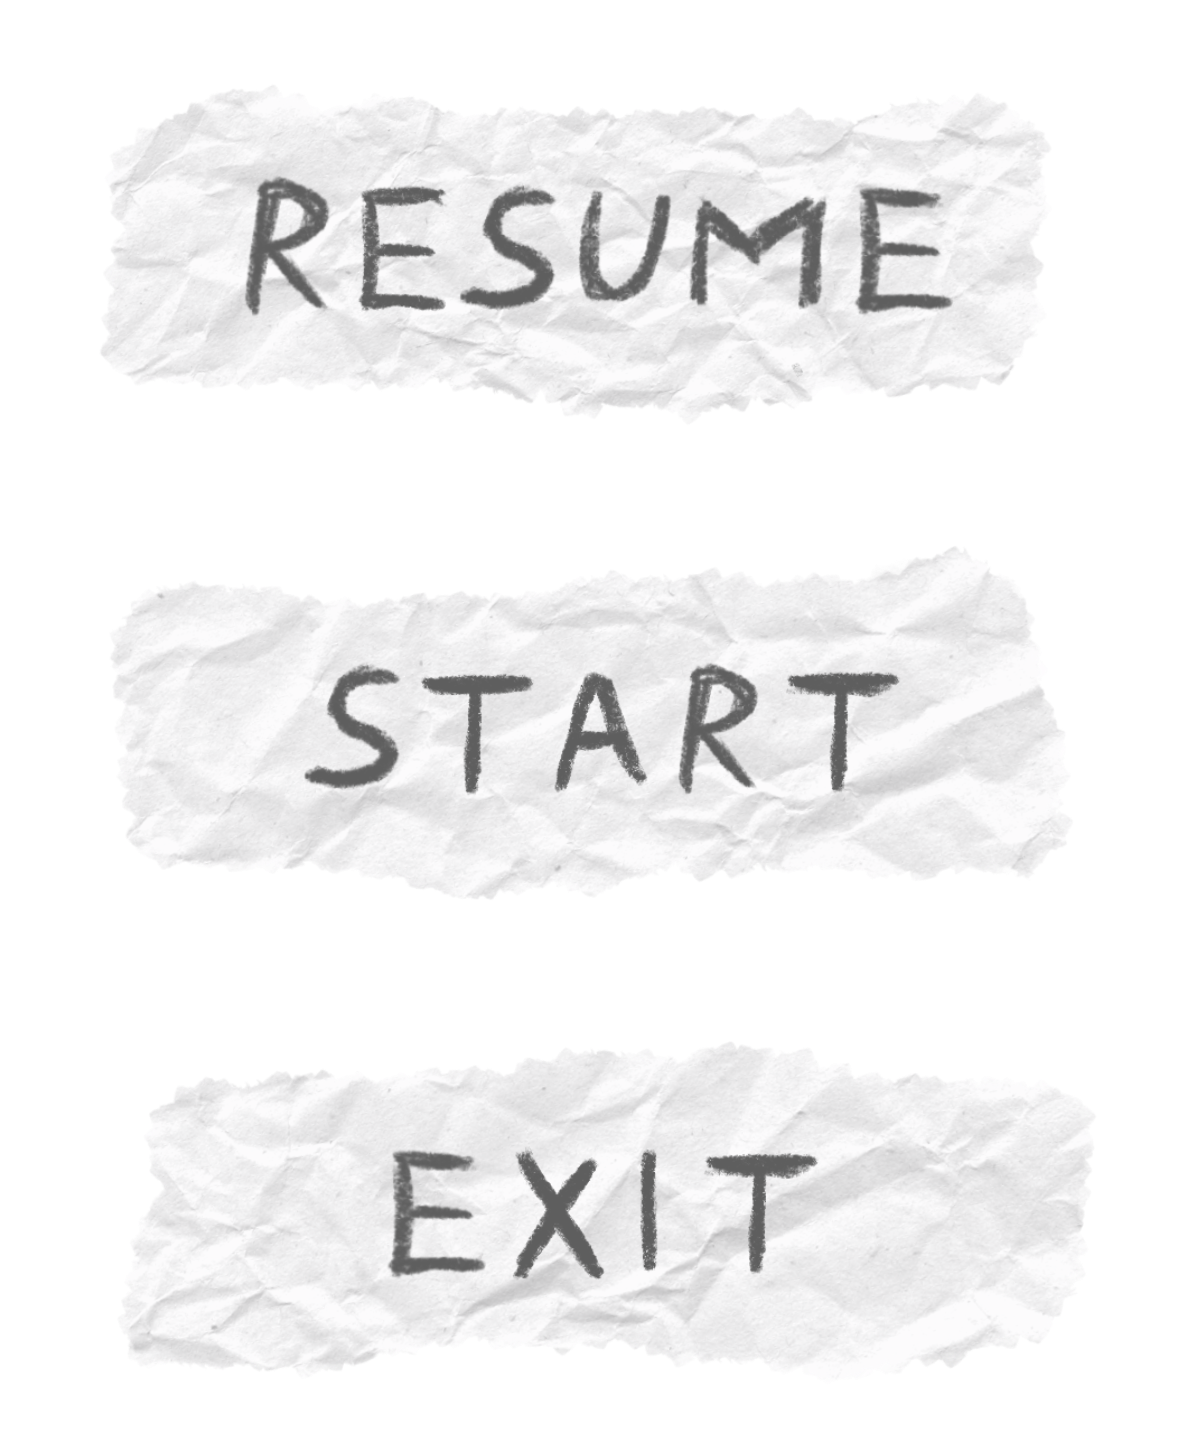 RESUME
START
EXIT